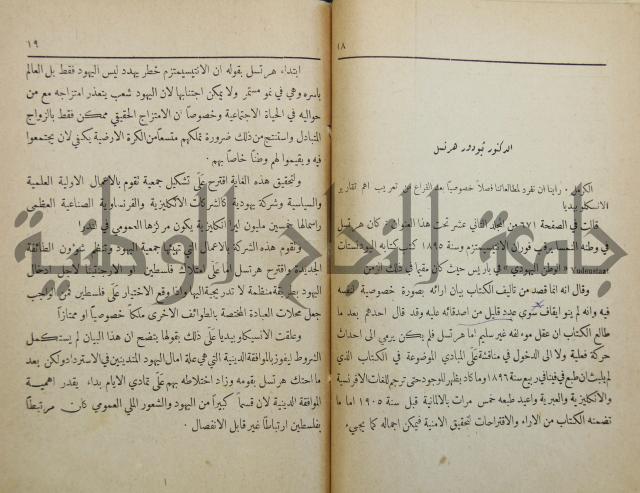 ١٨
الدكتور ثيودور هرتسل
الكرمل . رأينا ان نفرد لمطالعاتنا فصلاً خصوصياً بعد الفراغ من تعريب اهم تقارير
الانسكلوبيديا
قالت في الصفحة ٦٧١ من المجلد الثاني عشر تحت هذا العنوان كان هرتسل
في وطنه النمسا وقت فوران الانتيسيمتزم وسنة ١٨٩٥ كتب كتابه اليودنستات
Yudenstaat « الوطن اليهودي » في باريس حيث كان مقيماً في ذلك الزمن
وقال انه انما قصد من تاليف الكتاب بيان ارائه بصورة خصوصية لنفسه
فيه وانه لم ينوِ ايقاف سوى عدد قليل من اصدقائه عليه وقد قال احدهم بعد ما
طالع الكتاب ان عقل مؤلفه غير سليم اما هرتسل فلم يكن يرمي الى احداث
حركة فعلية ولا الى الدخول في مناقشة على المبادي الموضوعة في الكتاب الذي
لم يلبث ان طبع في فينا في ربيع سنة ١٨٩٦ وما كاد يظهر للوجود حتى ترجم للغات الافرنسية
والانكليزية والعبرية واعيد طبعه خمس مرات بالالمانية قبل سنة ١٩٠٥ اما ما
تضمنه الكتاب من الاراء والاقتراحات لتحقيق الامنية فيمكن اجماله كما يجيء
١٩
ابتداء هرتسل بقوله ان الانتيسيمتزم خطر يهدد ليس اليهود فقط بل العالم
باسره وهي في نمو مستمر ولا يمكن اجتنابها لان اليهود شعب يتعذر امتزاجه مع من
حواليه في الحياة الاجتماعية وخصوصاً ان الامتزاج الحقيقي ممكن فقط بالزواج
المتبادل واستنتج من ذلك ضرورة تملكهم متسعاً من الكرة الارضية يكفي لان يجتمعوا
فيه ويقيموا لهم وطناً خاصاً بهم .
ولتحقيق هذه الغاية اقترح على تشكيل جمعية تقوم بالاعمال الاولية العلمية
والسياسية وشركة يهودية كالشركات الانكليزية والفرنساوية الصناعية العظمى
راسمالها خمسين مليون ليرا انكليزية يكون مركزها العمومي في لندرا
وتقوم هذه الشركة بالاعمال التي تهيئها جمعية اليهود وتنظم شؤون الطائفة
الجديدة واقترح هرتسل اما على امتلاك فلسطين او الارجنتينا لاجل ادخال
اليهود بطريقة منظمة لا تدريجية اليها واذا وقع الاختيار على فلسطين فمن الواجب
جعل محلات العبادة المختصة بالطوائف الاخرى ملكاً خصوصياً او ممتازاً
وعلقت الانسيكلوبيديا على ذلك بقولها يتضح ان هذا البيان لم يستكمل
الشروط ليفوز بالموافقة الدينية التي هي علة امال اليهود المتدينين في الاسترداد ولكن بعد
ما احتك هرتسل بقومه وزاد اختلاطه بهم على تمادي الايام بداء يقدر اهمية
الموافقة الدينية لان قسماً كبيراً من اليهود والشعور الملي العمومي كان مرتبطاً
بفلسطين ارتباطاً غير قابل الانفصال .
جامعة النجاح الوطنية